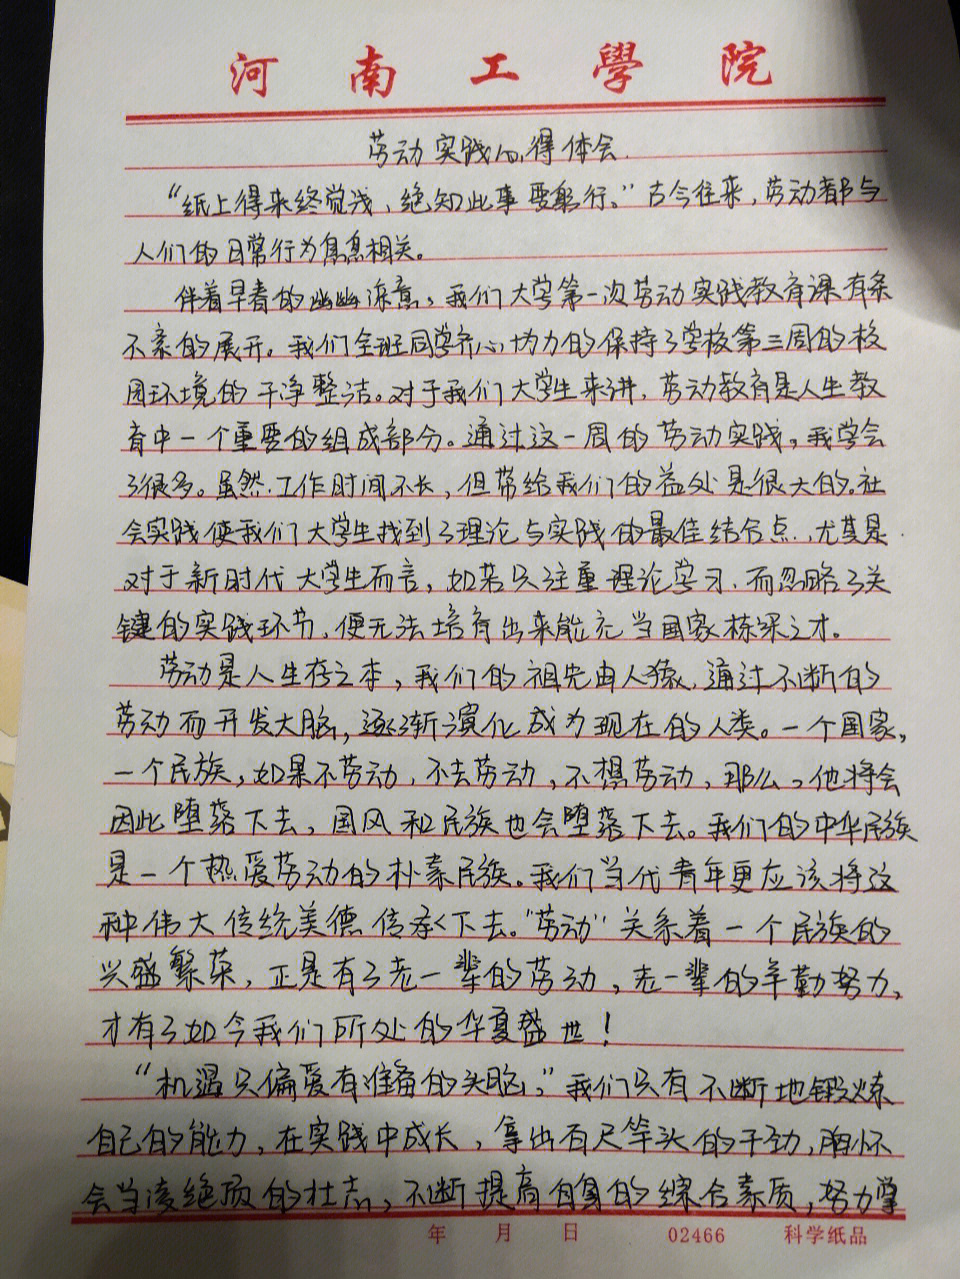 河南工學院
劳动实践心得体会.
“纸上得来终觉浅,绝知此事要躬行。”古今往来,劳动都与
人们的日常行为息息相关。
伴着早春的幽幽凉意,我们大学第一次劳动实践教育课有条
不紊的展开。我们全班同学齐心协力的保持了学校第三周的校
园环境的干净整洁。对于我们大学生来讲,劳动教育是人生教
育中一个重要的组成部分。通过这一周的劳动实践,我学会
了很多。虽然工作时间不长,但带给我们的益处是很大的。社
会实践使我们大学生找到了理论与实践的最佳结合点,尤其是
对于新时代大学生而言,如若只注重理论学习,而忽略了关
键的实践环节,便无法培育出来能充当国家栋梁之才。
劳动是人生存之本,我们的祖先由人猿,通过不断的
劳动而开发大脑,逐渐演化成为现在的人类。一个国家,
一个民族,如果不劳动,不去劳动,不想劳动,那么,他将会
因此堕落下去,国风和民族也会堕落下去。我们的中华民族
是一个热爱劳动的朴素民族。我们当代青年更应该将这
种伟大传统美德传承下去。“劳动”关系着一个民族的
兴盛繁荣,正是有了老一辈的劳动,老一辈的辛勤努力,
才有了如今我们所处的华夏盛世!
“机遇只偏爱有准备的头脑,”我们只有不断地锻炼
自己的能力,在实践中成长,拿出百尺竿头的干劲,胸怀
会当凌绝顶的壮志,不断提高自身的综合素质,努力掌
年 月 日 02466 科学纸品